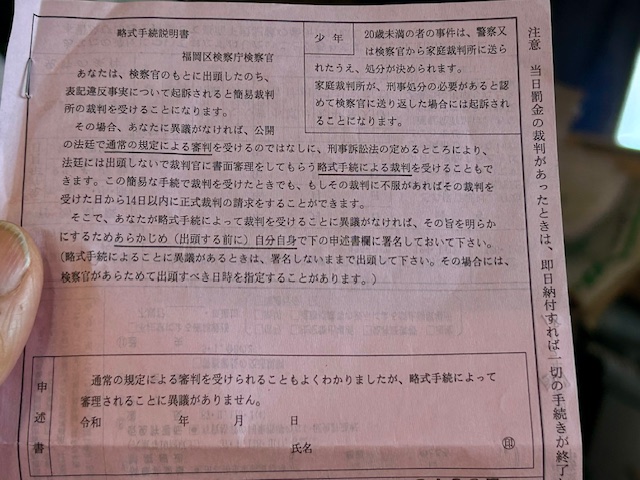 略式手続説明書
福岡区検察庁検察官
あなたは、検察官のもとに出頭したのち、
表記違反事実について起訴されると簡易裁判
所の裁判を受けることになります。
少年
20歳未満の者の事件は、警察又
は検察官から家庭裁判所に送ら
れたうえ、処分が決められます。
家庭裁判所が、刑事処分の必要があると認
めて検察官に送り返した場合には起訴され
ることになります。
その場合、あなたに異議がなければ、公開
の法廷で通常の規定による審判を受けるのではなしに、刑事訴訟法の定めるところにより、
法廷には出頭しないで裁判官に書面審理をしてもらう略式手続による裁判を受けることもで
きます。この簡易な手続で裁判を受けたときでも、もしその裁判に不服があればその裁判を
受けた日から14日以内に正式裁判の請求をすることができます。
そこで、あなたが略式手続によって裁判を受けることに異議がなければ、その旨を明らか
にするためあらかじめ（出頭する前に）自分自身で下の申述書欄に署名しておいて下さい。
(略式手続によることに異議があるときは、署名しないままで出頭して下さい。その場合には、
検察官があらためて出頭すべき日時を指定することがあります。)
申述書
通常の規定による審判を受けられることもよくわかりましたが、略式手続によって
審理されることに異議がありません。
令和 年 月 日
氏名 ㊞
注意 当日罰金の裁判があったときは、即日納付すれば一切の手続きが終了